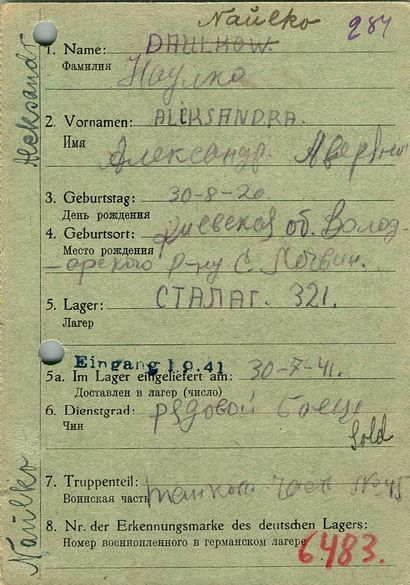 Naŭlko 284
1. Name: DAULKOW.
Фамилия Наулко
2. Vornamen: ALEKSANDRA.
Имя Александр.
3. Geburtstag: 30-8-20
День рождения
4. Geburtsort: Киевская об. Волод-
Место рождения
-арского р-ну С. Логвин.
5. Lager: СТАЛАГ. 321.
Лагер
Eingang 1 9. 41
5a. Im Lager eingeliefert am: 30-7-41.
Доставлен в лагер (число)
6. Dienstgrad: рядовой боец
Чин
Sold
7. Truppenteil:
Воинская часть част №45
8. Nr. der Erkennungsmarke des deutschen Lagers:
Номер военнопленного в германском лагере
6483.
Aleksandr
Naŭlko